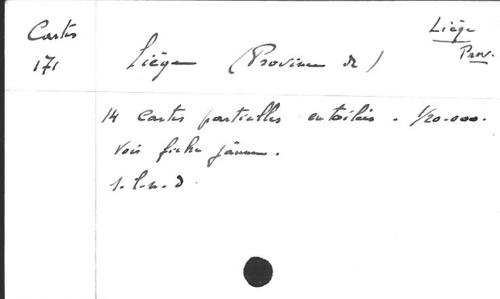 Cartes
171
Liège
Prov.
Liège (Province de)
14 cartes partielles entoilées. 1/20.000.
Voir fiche jaune.
s.l.n.d